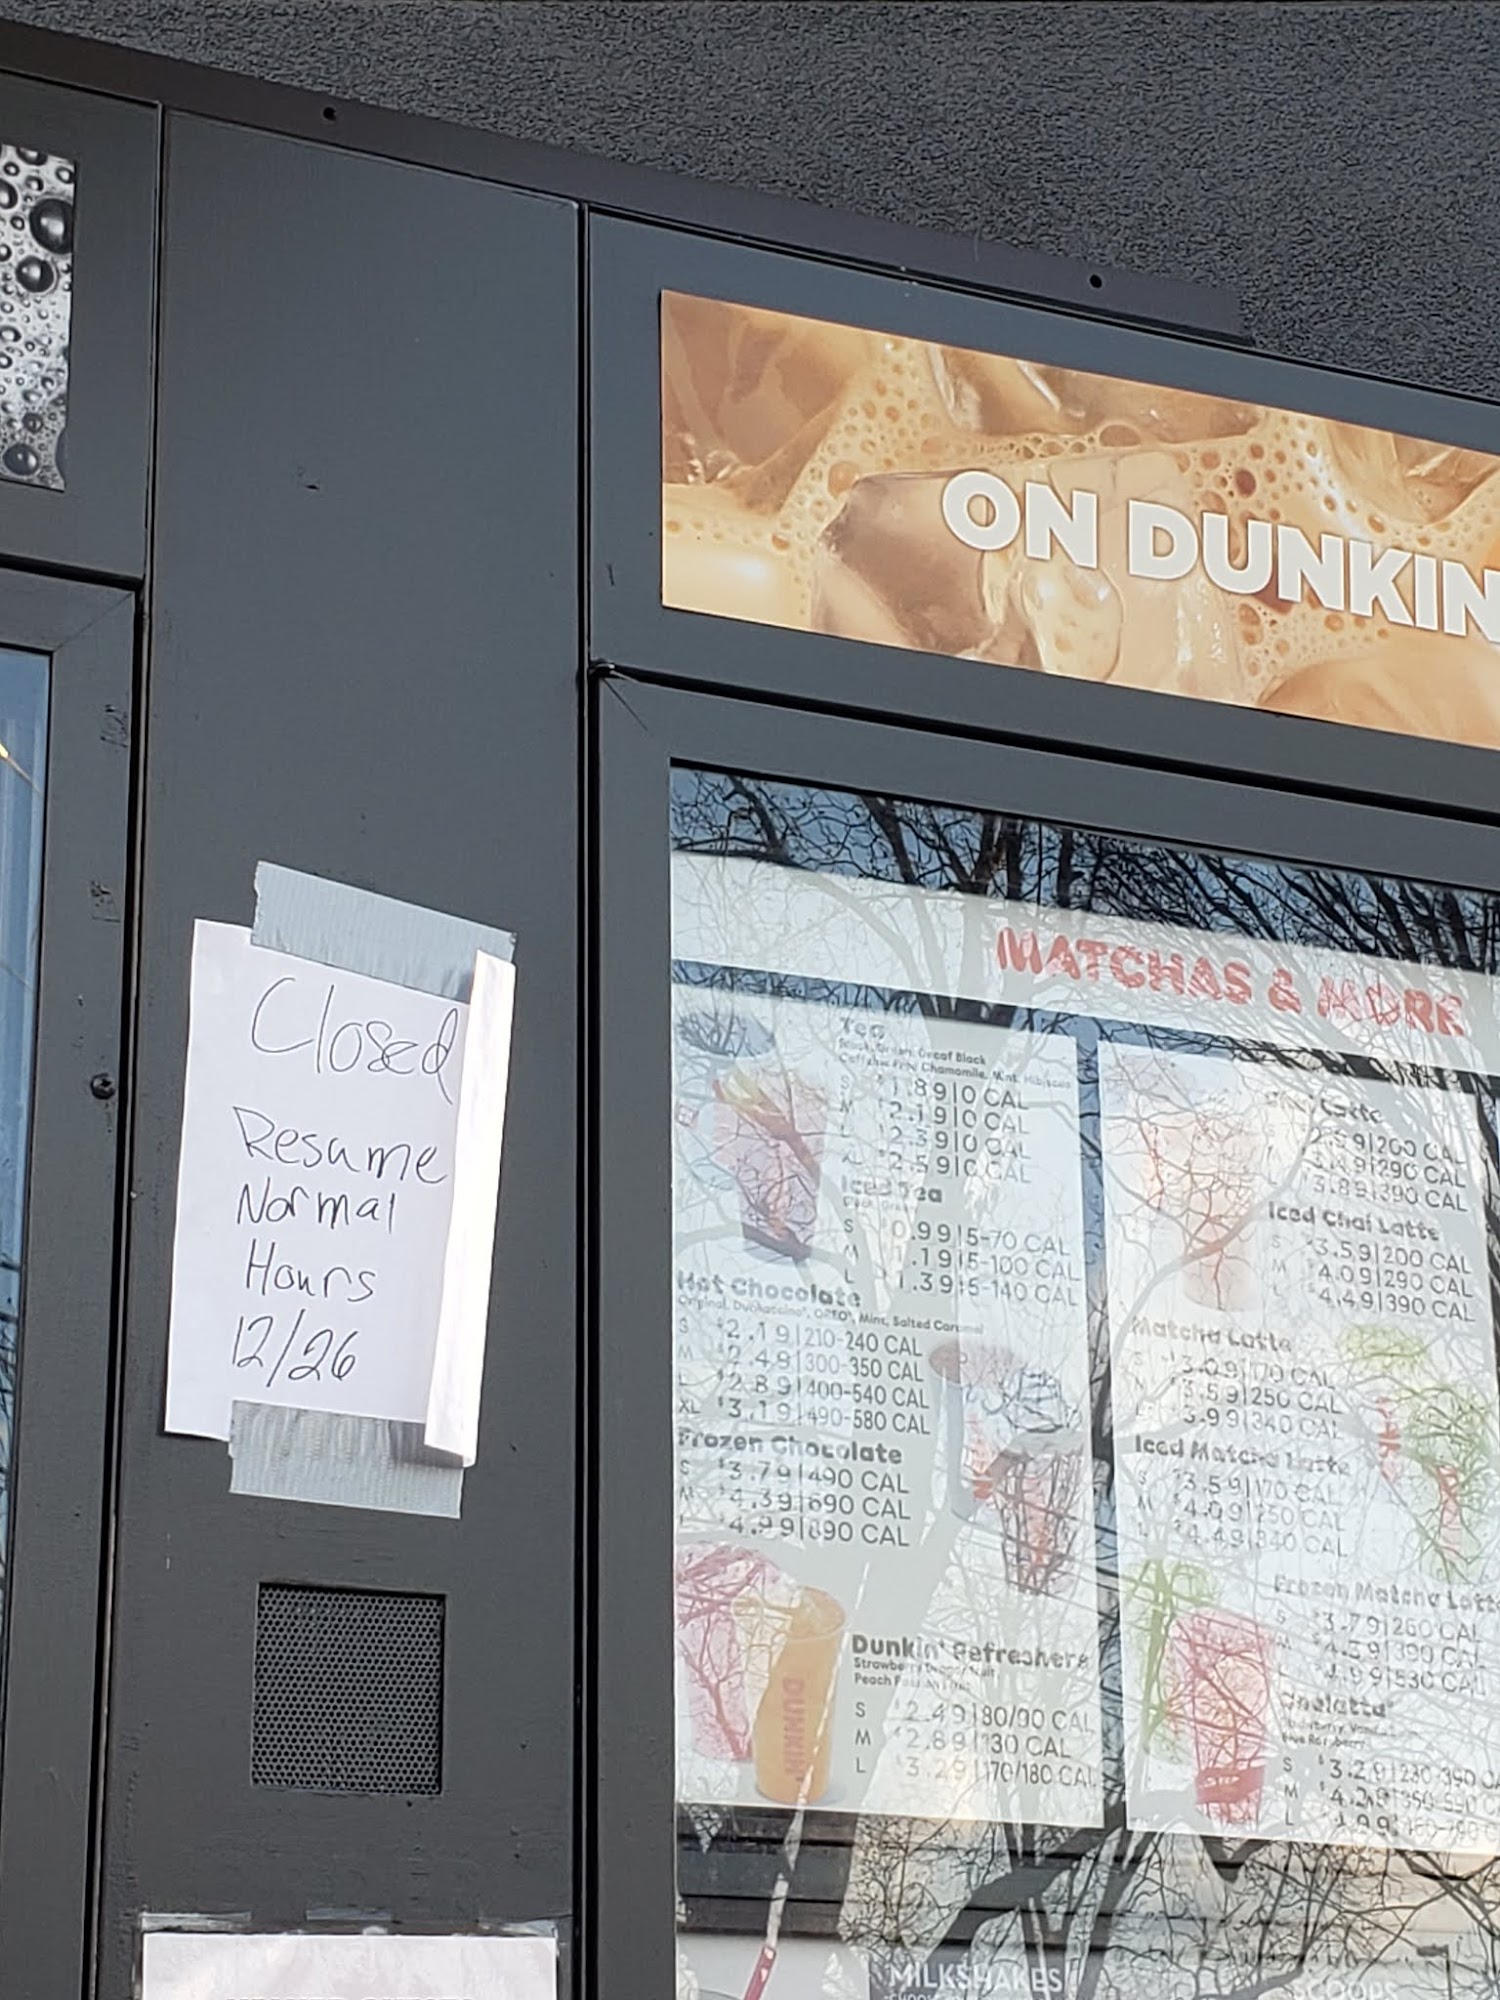 ON DUNKIN
Closed
Resume
Normal
Hours
12/26
MATCHAS & MORE
Tea
Decaf Black
Chamomile, Mint, Hibiscus
S $1.89|0 CAL
M $2.19|0 CAL
L $2.39|0 CAL
XL $2.59|0 CAL
Iced Tea
S $0.99|5-70 CAL
M $1.19|5-100 CAL
L $1.39|5-140 CAL
Hot Chocolate
Original, Dunkaccino®, OREO®, Mint, Salted Caramel
S $2.19|210-240 CAL
M $2.49|300-350 CAL
L $2.89|400-540 CAL
XL $3.19|490-580 CAL
Frozen Chocolate
S $3.79|490 CAL
M $4.39|690 CAL
L $4.99|890 CAL
Dunkin' Refreshers
Strawberry
Peach
S $2.49|80/90 CAL
M $2.89|130 CAL
L $3.29|170/180 CAL
DUNKIN'
Latte
200 CAL
290 CAL
$3.89|390 CAL
Iced Chai Latte
S $3.59|200 CAL
M $4.09|290 CAL
L $4.49|390 CAL
Matcha Latte
S $3.09|170 CAL
M $3.59|250 CAL
L $3.99|340 CAL
Iced Matcha Latte
S $3.59|170 CAL
M $4.09|250 CAL
L $4.49|340 CAL
Frozen Matcha Latte
S $3.79|260 CAL
M $4.39|390 CAL
L $4.99|530 CAL
Coolatta®
Blue Raspberry
S $3.29
M
L
MILKSHAKES
SCOOPS